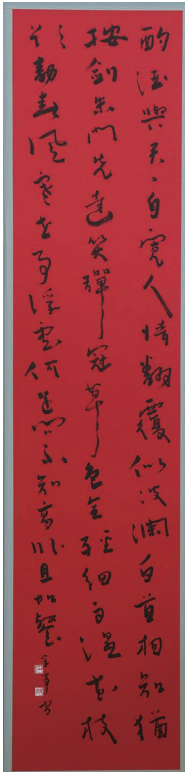 酌酒與君々自寬人情翻覆似波瀾白首相知猶
按劍朱門先達笑彈冠草色全經細雨濕花枝
欲動春風寒世事浮雲何足問不如高臥且加餐